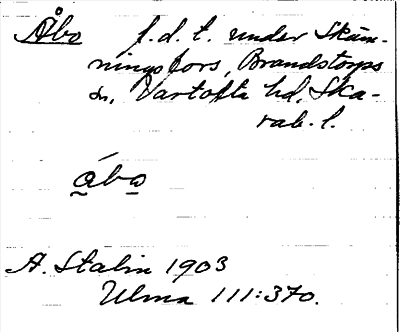 Åbo f.d.t. under Skäm-
ningsfors, Brandstorps
sn, Vartofta hd, Ska-
rab. l.
ábo
A. Stalin 1903
Ulma 111:370.